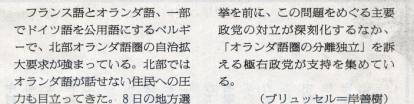 フランス語とオランダ語、一部
でドイツ語を公用語にするベルギ
ーで、北部オランダ語圏の自治拡
大要求が強まっている。北部では
オランダ語が話せない住民への圧
力も目立ってきた。８日の地方選
挙を前に、この問題をめぐる主要
政党の対立が深刻化するなか、
「オランダ語圏の分離独立」を訴
える極右政党が支持を集めてい
る。
（ブリュッセル＝岸善樹）